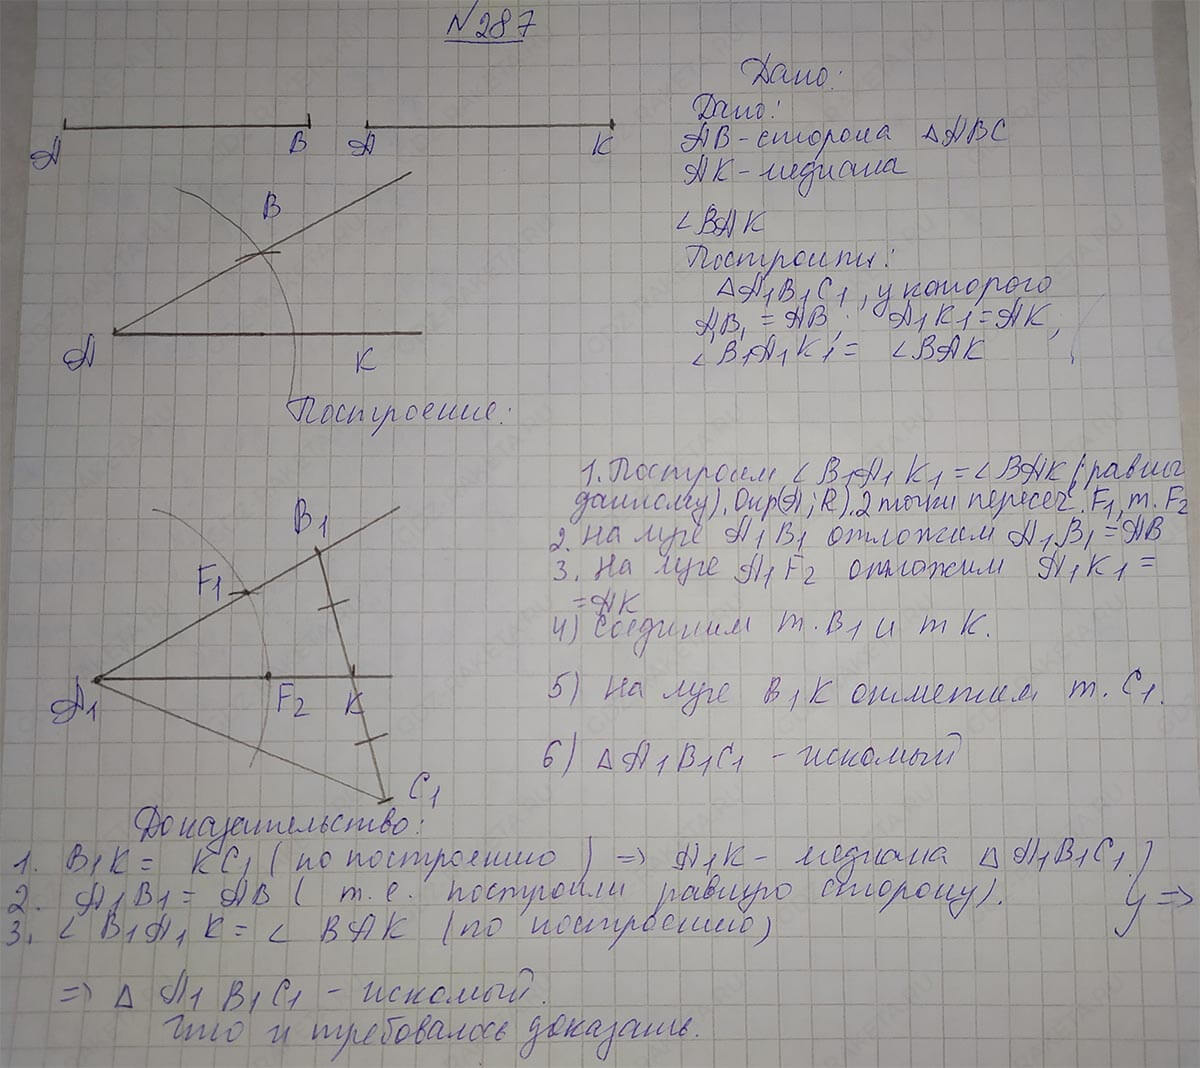 №287
Дано:
Дано:
A B A K
AB-сторона △ABC
AK-медиана
B
∠BAK
Построить:
△A₁B₁C₁, у которого
A₁B₁ = AB; A₁K₁=AK,
∠B₁A₁K₁= ∠BAK
A K
Построение:
1. Построим ∠B₁A₁K₁=∠BAK (равный
данному). Окр(A;R). 2 точки пересеч. F₁, т. F₂
B₁
2. На луче A₁B₁ отложим A₁B₁=AB
3. На луче A₁F₂ отложим A₁K₁=
F₁
=AK
4) Соединим т. B₁ и т K.
5) На луче B₁K отметим т. C₁.
A₁ F₂ K
6) △A₁B₁C₁ - искомый
C₁
Доказательство:
1. B₁K = KC₁ (по построению) => A₁K - медиана △A₁B₁C₁.
2. A₁B₁ = AB (т.е. построили равную сторону). =>
3. ∠B₁A₁K = ∠BAK (по построению)
=> △A₁B₁C₁ - искомый.
Что и требовалось доказать.